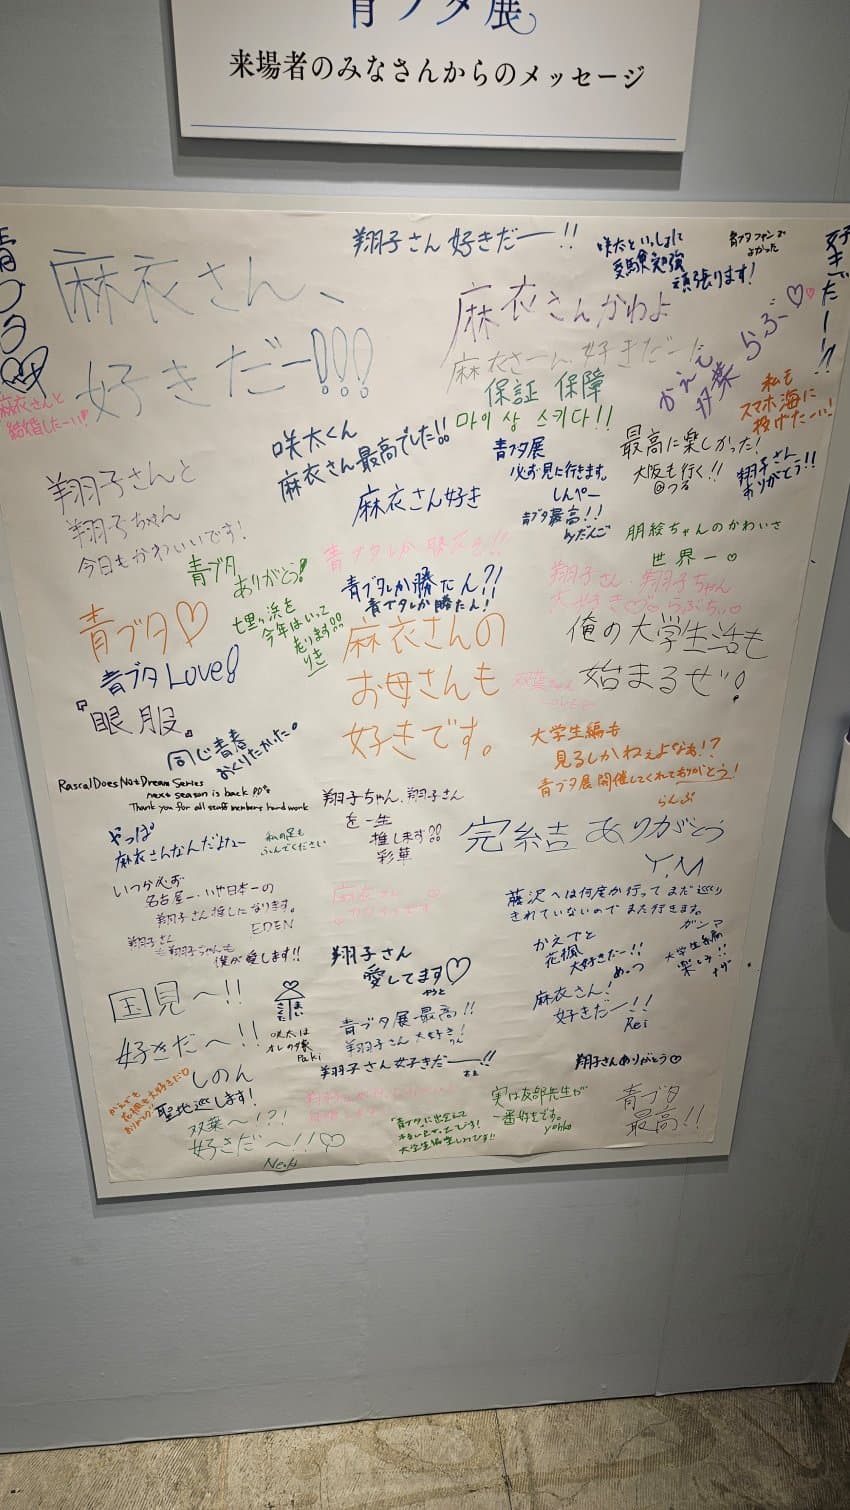 青ブタ展
来場者のみなさんからのメッセージ
翔子さん 好きだー!!
咲太といっしょに
受験勉強
頑張ります!
青ブタファンで
よかった
好きだーー!!
麻衣さん、
好きだー!!!
麻衣さんかわよ
麻衣さーん、好きだー!!
かえで
双葉 らぶ♡♡
麻衣さんと
結婚したーい
保証 保障
마이 상 스키다!!
私も
スマホ海に
投げたーい!
咲太くん
麻衣さん最高でした!!
青ブタ展
必ず見に行きます。
しんぺー
青ブタ最高!!
byだんご
最高に楽しかった!
大阪も行く!!
@つる
翔子さん
ありがとう!!
翔子さんと
翔子ちゃん
今日もかわいいです!
麻衣さん好き
朋絵ちゃんのかわいさ
世界一♡
青ブタ
ありがとう!
青ブタしか勝たん!!
青ブタしか勝たん?!
青ブタしか勝たん!
翔子さん、翔子ちゃん
青ブタ♡
七里ヶ浜を
今年はいって
走ります!!
りき
麻衣さんの
お母さんも
好きです。
俺の大学生活も
始まるぜ!
双葉ちゃん
青ブタLove!
『眼服』
同じ青春
おくりたかった。
大学生編も
見るしかねぇよなぁ!?
青ブタ展開催してくれてありがとう!
らんぷ
RascalDoesNotDream Series
next season is back
Thank you for all staff members hard work
翔子ちゃん、翔子さん
を一生
推します!!
彩華
完結 ありがとう
Y.M
やっぱ
麻衣さんなんだよなー
私の足も
ふんでください
いつか必ず
名古屋一、いや日本一の
翔子さん推しになります。
EDEN
翔子さん
も翔子ちゃんも
僕が愛します!!
麻衣さん
藤沢へは何度か行って まだ巡り
きれていないので また行きます。
ガンマ
かえでと
花楓
大好きだー!!
めっつ
大学生編
楽しみ!!
翔子さん
愛してます♡
やまと
国見〜!!
好きだ〜!!
しのん
まい
さくた
咲太は
オレの嫁
Paki
青ブタ展最高!!
翔子さん大好き!
りん
麻衣さん!
好きだー!!
Rei
翔子さん好きだー!!
翔子さんありがとう♡
かえでも
花楓も大好きだ
ありがとう
聖地巡します!
双葉〜!?!
好きだ〜!!♡
Neo.H
「青ブタ」に出会えて
実は友部先生が
一番好きです。
yohko
青ブタ
最高!!